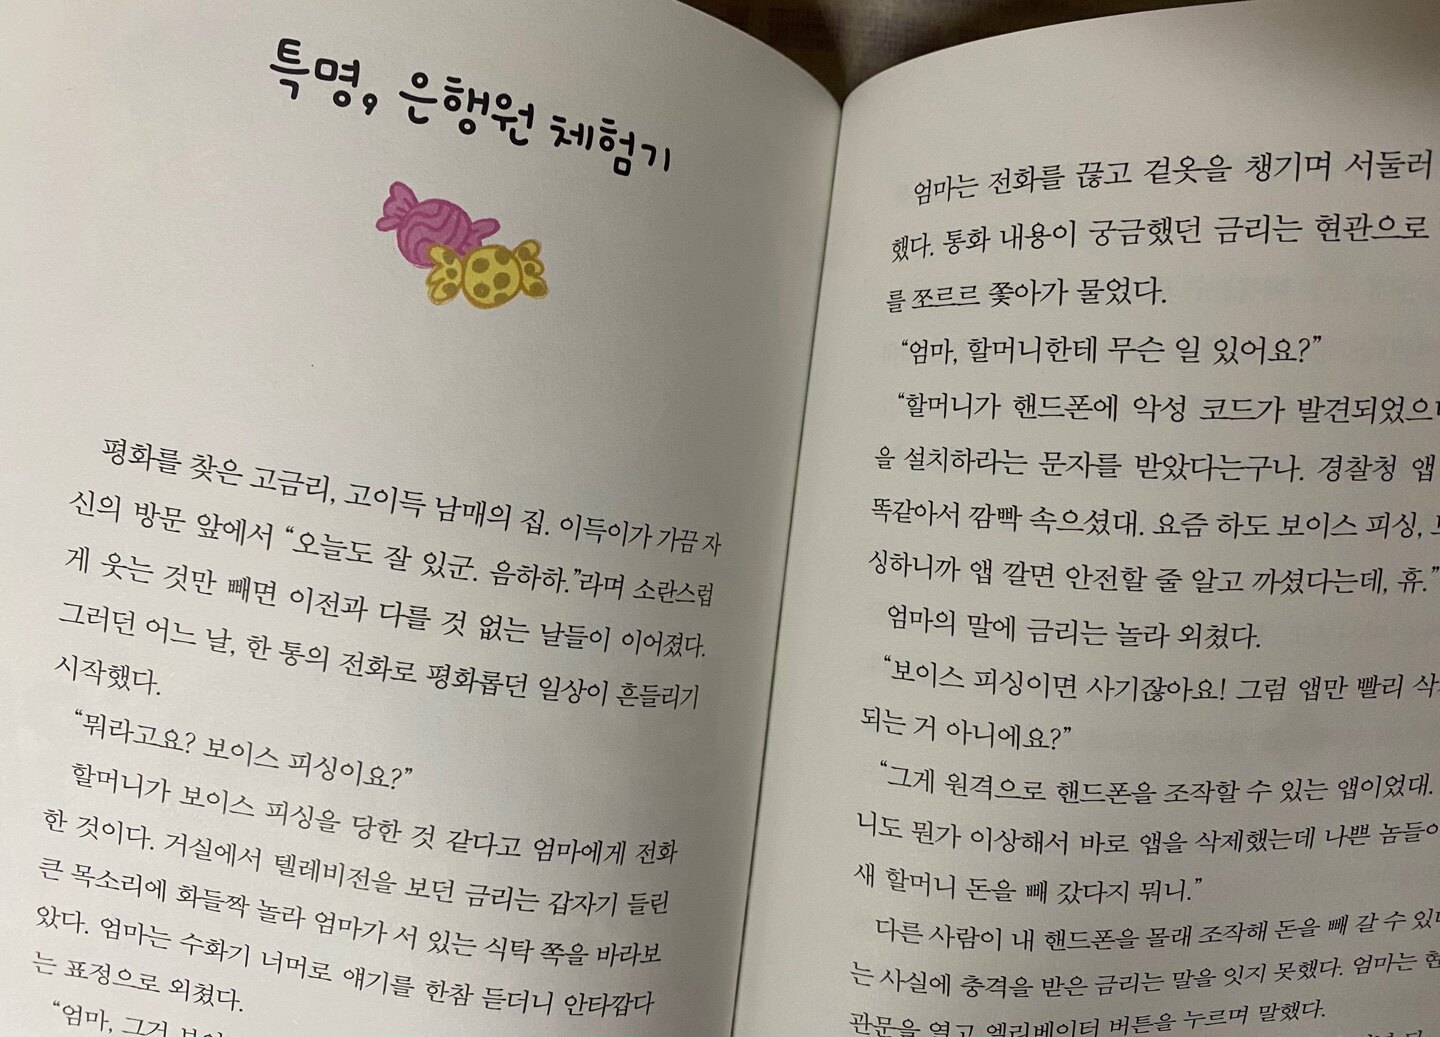 특명, 은행원 체험기
평화를 찾은 고금리, 고이득 남매의 집. 이득이가 가끔 자
신의 방문 앞에서 “오늘도 잘 있군. 음하하.”라며 소란스럽
게 웃는 것만 빼면 이전과 다를 것 없는 날들이 이어졌다.
그러던 어느 날, 한 통의 전화로 평화롭던 일상이 흔들리기
시작했다.
“뭐라고요? 보이스 피싱이요?”
할머니가 보이스 피싱을 당한 것 같다고 엄마에게 전화
한 것이다. 거실에서 텔레비전을 보던 금리는 갑자기 들린
큰 목소리에 화들짝 놀라 엄마가 서 있는 식탁 쪽을 바라보
았다. 엄마는 수화기 너머로 얘기를 한참 듣더니 안타깝다
는 표정으로 외쳤다.
“엄마, 그거
엄마는 전화를 끊고 겉옷을 챙기며 서둘러
했다. 통화 내용이 궁금했던 금리는 현관으로
를 쪼르르 쫓아가 물었다.
“엄마, 할머니한테 무슨 일 있어요?”
“할머니가 핸드폰에 악성 코드가 발견되었으
을 설치하라는 문자를 받았다는구나. 경찰청 앱
똑같아서 깜빡 속으셨대. 요즘 하도 보이스 피싱,
싱하니까 앱 깔면 안전할 줄 알고 까셨다는데, 휴.”
엄마의 말에 금리는 놀라 외쳤다.
“보이스 피싱이면 사기잖아요! 그럼 앱만 빨리 삭
되는 거 아니에요?”
“그게 원격으로 핸드폰을 조작할 수 있는 앱이었대.
니도 뭔가 이상해서 바로 앱을 삭제했는데 나쁜 놈들이
새 할머니 돈을 빼 갔다지 뭐니.”
다른 사람이 내 핸드폰을 몰래 조작해 돈을 빼 갈 수 있다
는 사실에 충격을 받은 금리는 말을 잇지 못했다. 엄마는 현
관문을 열고 엘리베이터 버튼을 누르며 말했다.